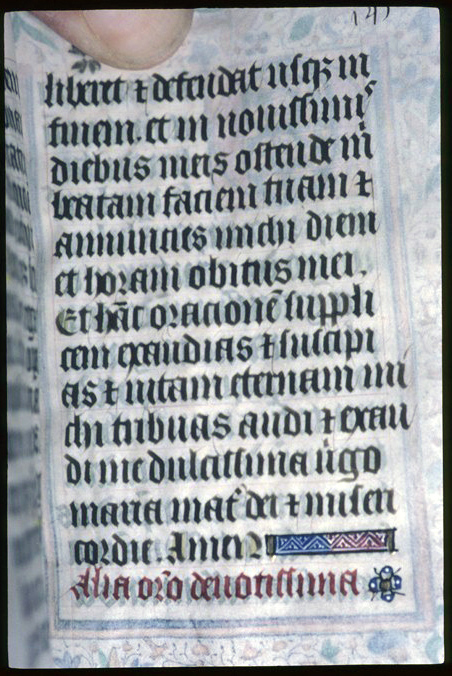 145
liberet ⁊ defendat usq₃ in
finem. et in nouissimis
diebus meis ostende m̄
beatam faciem tuam ⁊
annuncies michi diem
et horam obitus mei.
Et hāc orationē suppli
cem exaudias ⁊ suscipi
as ⁊ uitam eternam mi
chi tribuas audi ⁊ exau
di me dulcissima uīgo
maria mat̄ dei ⁊ miseri
cordie. Amen
Alia or̄o deuotissima